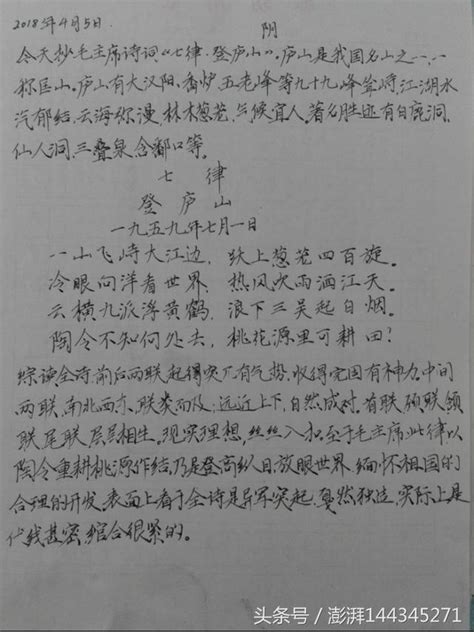 2018年4月5日. 阴
今天抄毛主席诗词《七律·登庐山》,庐山是我国名山之一,一
称匡山,庐山有大汉阳、香炉、五老峰等九十九峰耸峙,江湖水
汽郁结,云海弥漫,林木葱茏,气候宜人。著名胜迹有白鹿洞,
仙人洞,三叠泉,含鄱口等。
七 律
登 庐 山
一九五九年七月一日
一山飞峙大江边,跃上葱茏四百旋。
冷眼向洋看世界,热风吹雨洒江天。
云横九派浮黄鹤,浪下三吴起白烟。
陶令不知何处去,桃花源里可耕田?
综读全诗,前后两联起得突兀有气势,收得完固有神力,中间
两联,南北西东,联蒙而及;远近上下,自然成对,首联颔联领
联尾联层层相生,现实理想,丝丝入扣至于毛主席此律以
陶令重耕桃源作结,乃是登高纵目,放眼世界,缅怀祖国的
合理的开发,表面上看于全诗是异军突起,戛然独造,实际上是
代线甚密,绾合很紧的。
头条号/澎湃144345271